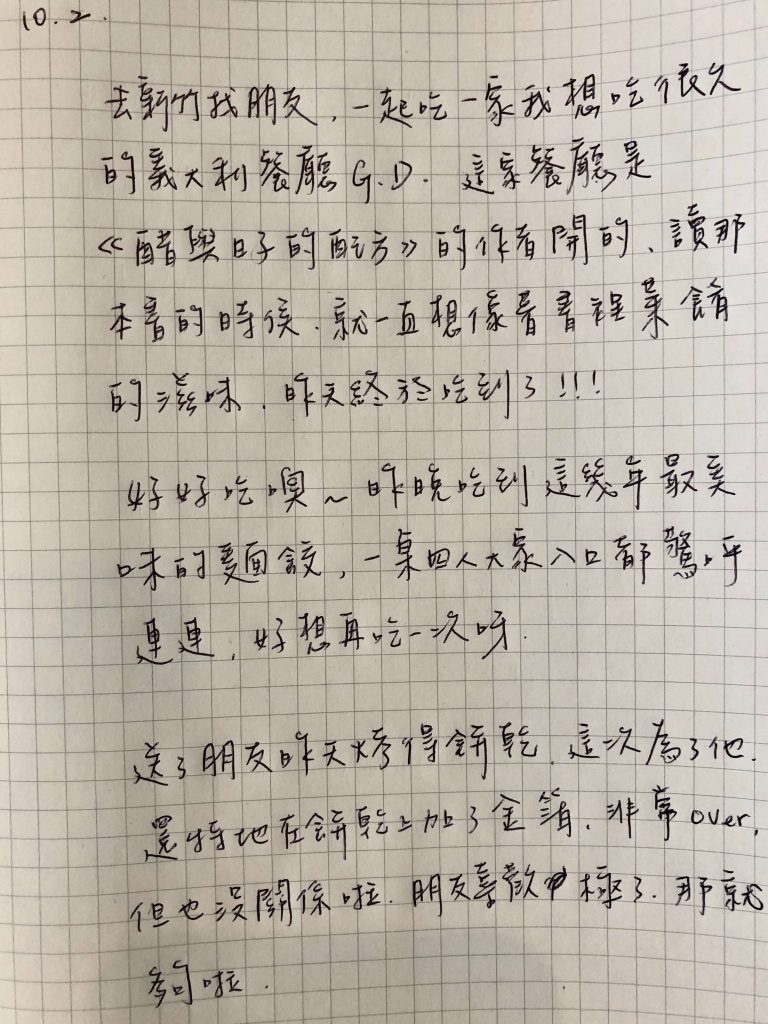 10.2.
去新竹找朋友，一起吃一家我想吃很久
的義大利餐廳 G.D. 這家餐廳是
《醋與日子的配方》的作者開的、讀那
本書的時候．就一直想像著書裡菜餚
的滋味．昨天終於吃到了!!!
好好吃噢~昨晚吃到這幾年最美
味的麵餃，一桌四人大家入口都驚呼
連連，好想再吃一次呀．
送了朋友昨天烤得餅乾．這次為了他．
還特地在餅乾上加了金箔．非常over，
但也沒關係啦．朋友喜歡極了．那就
夠啦．